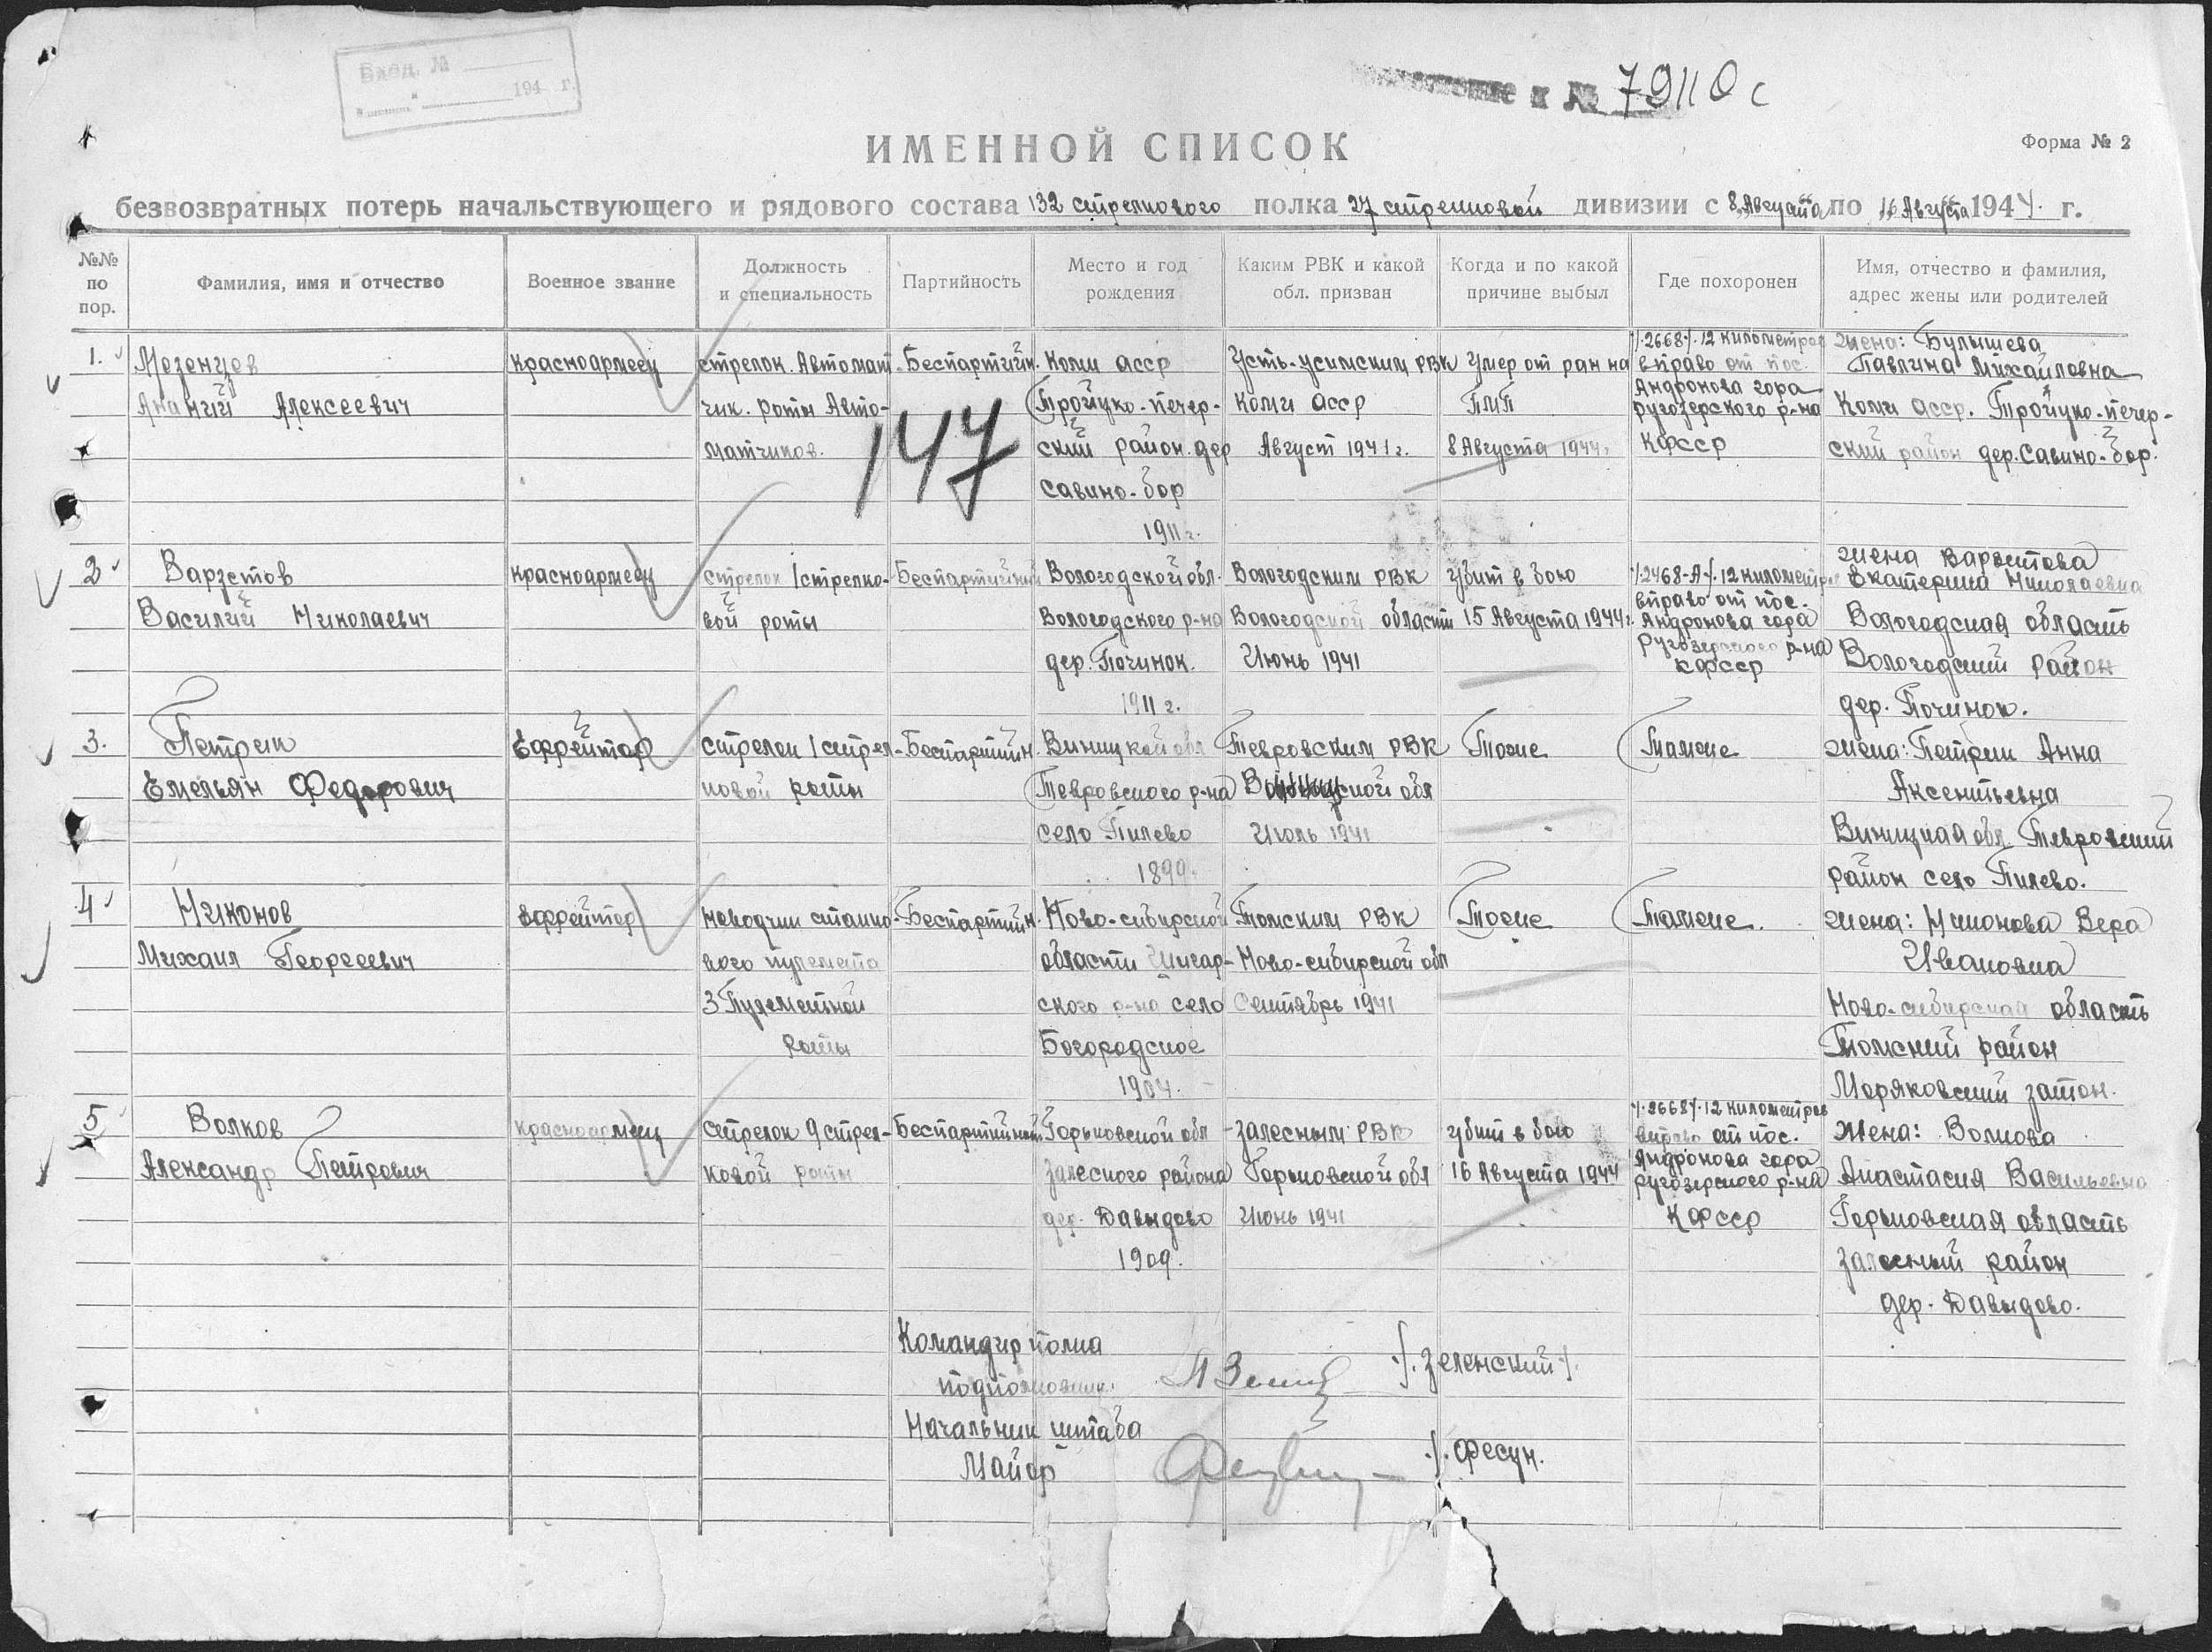 Вход. №
"___" ______ 194 г.
к № 79110 с
ИМЕННОЙ СПИСОК
Форма № 2
безвозвратных потерь начальствующего и рядового состава 132 стрелкового полка 27 стрелковой дивизии с 8 Августа по 16 Августа 1944 г.
№№ по пор.
Фамилия, имя и отчество
Военное звание
Должность и специальность
Партийность
Место и год рождения
Каким РВК и какой обл. призван
Когда и по какой причине выбыл
Где похоронен
Имя, отчество и фамилия, адрес жены или родителей
147
1.
Мезенцев
Ананий Алексеевич
красноармеец
стрелок. Автомат-
чик. роты Авто-
матчиков.
Беспартийн.
Коми асср
Тройцко-печер-
ский район. дер
Савино-бор
1911 г.
Усть-усинским РВК
Коми асср
Август 1941 г.
Умер от ран на
ПМП
8 Августа 1944.
/.2668/. 12 километров
вправо от пос.
Андронова гора
ругозерского р-на
КФССР
жена: Булышева
Павлина Михайловна
Коми асср. Тройцко-печер-
ский район дер. Савино-бор.
2
Варзстов
Василий Николаевич
красноармеец
стрелок 1 стрелко-
вой роты
Беспартийный
Вологодской обл.
Вологодского р-на
дер. Починок.
1911 г.
Вологодским РВК
Вологодской области
Июнь 1941
Убит в бою
15 Августа 1944 г.
/.2468-А/. 12 километров
вправо от пос.
Андронова гора
Ругозерского р-на
КФССР
жена Варзстова
Екатерина Николаевна
Вологодская область
Вологодский район
дер. Починок.
3.
Петрик
Емельян Федорович
Ефрейтор
стрелок 1 стрел-
ковой роты
Беспартийн.
Виницкой обл
Тевровского р-на
село Пилево
1899.
Тевровским РВК
Виницкой обл
Июль 1941
Тоже
Тамже
жена: Петрик Анна
Аксентьевна
Виницкая обл. Тевровский
район село Пилево.
4
Никонов
Михаил Георгеевич
ефрейтор
наводчик станко-
вого пулемета
3 Пулеметной
роты
Беспартийн.
Ново-сибирской
области Шигар-
ского р-на село
Богородское
1904.
Томским РВК
Ново-сибирской обл
Сентябрь 1941
Тоже
Тамже.
жена: Никонова Вера
Ивановна
Ново-сибирская область
Томский район
Моряковский затон.
5
Волков
Александр Петрович
красноармеец
стрелок 9 стрел-
ковой роты
Беспартийный.
Горьковской обл
залесного района
дер. Давыдово
1909.
Залесным РВК
Горьковской обл
Июнь 1941
Убит в бою
16 Августа 1944
/.2668/. 12 километров
вправо от пос.
Андронова гора
ругозерского р-на
КФССР
Жена: Волкова
Анастасия Васильевна
Горьковская область
залесный район
дер. Давыдово.
Командир полка
подполковник. /.Зеленский/.
Начальник штаба
Майор /. Фесун.